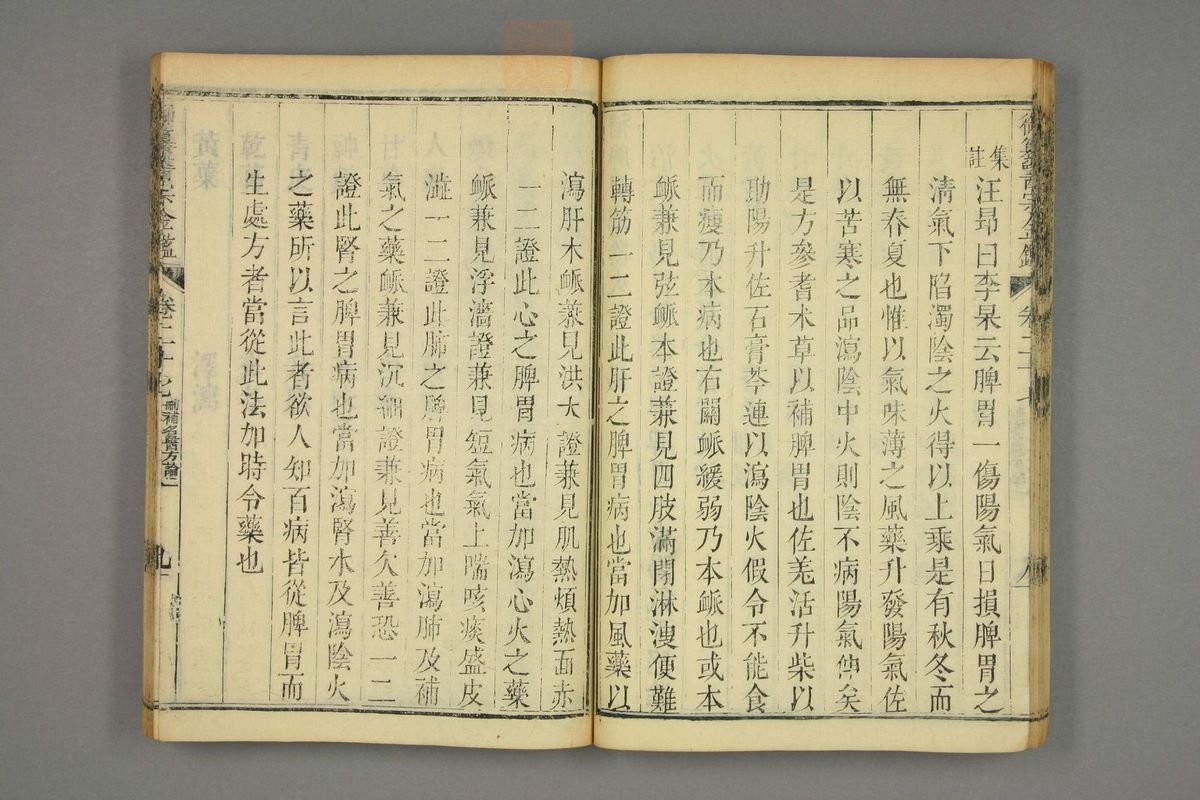 御纂醫宗金鑑 卷二十七 八
集註 汪昂曰李杲云脾胃一傷陽氣日損脾胃之
清氣下陷濁陰之火得以上乘是有秋冬而
無春夏也惟以氣味薄之風藥升發陽氣佐
以苦寒之品瀉陰中火則陰不病陽氣伸矣
是方參耆朮草以補脾胃也佐羌活升柴以
助陽升佐石膏芩連以瀉陰火假令不能食
而瘦乃本病也右關脈緩弱乃本脈也或本
脈兼見弦脈本證兼見四肢滿閉淋溲便難
轉筋一二證此肝之脾胃病也當加風藥以
瀉肝木脈兼見洪大證兼見肌熱煩熱面赤
一二證此心之脾胃病也當加瀉心火之藥
脈兼見浮濇證兼見短氣氣上喘咳痰盛皮
澁一二證此肺之脾胃病也當加瀉肺及補
氣之藥脈兼見沉細證兼見善欠善恐一二
證此腎之脾胃病也當加瀉腎水及瀉陰火
之藥所以言此者欲人知百病皆從脾胃而
生處方者當從此法加時令藥也
御纂醫宗金鑑 卷二十七 刪補名醫方論二 九